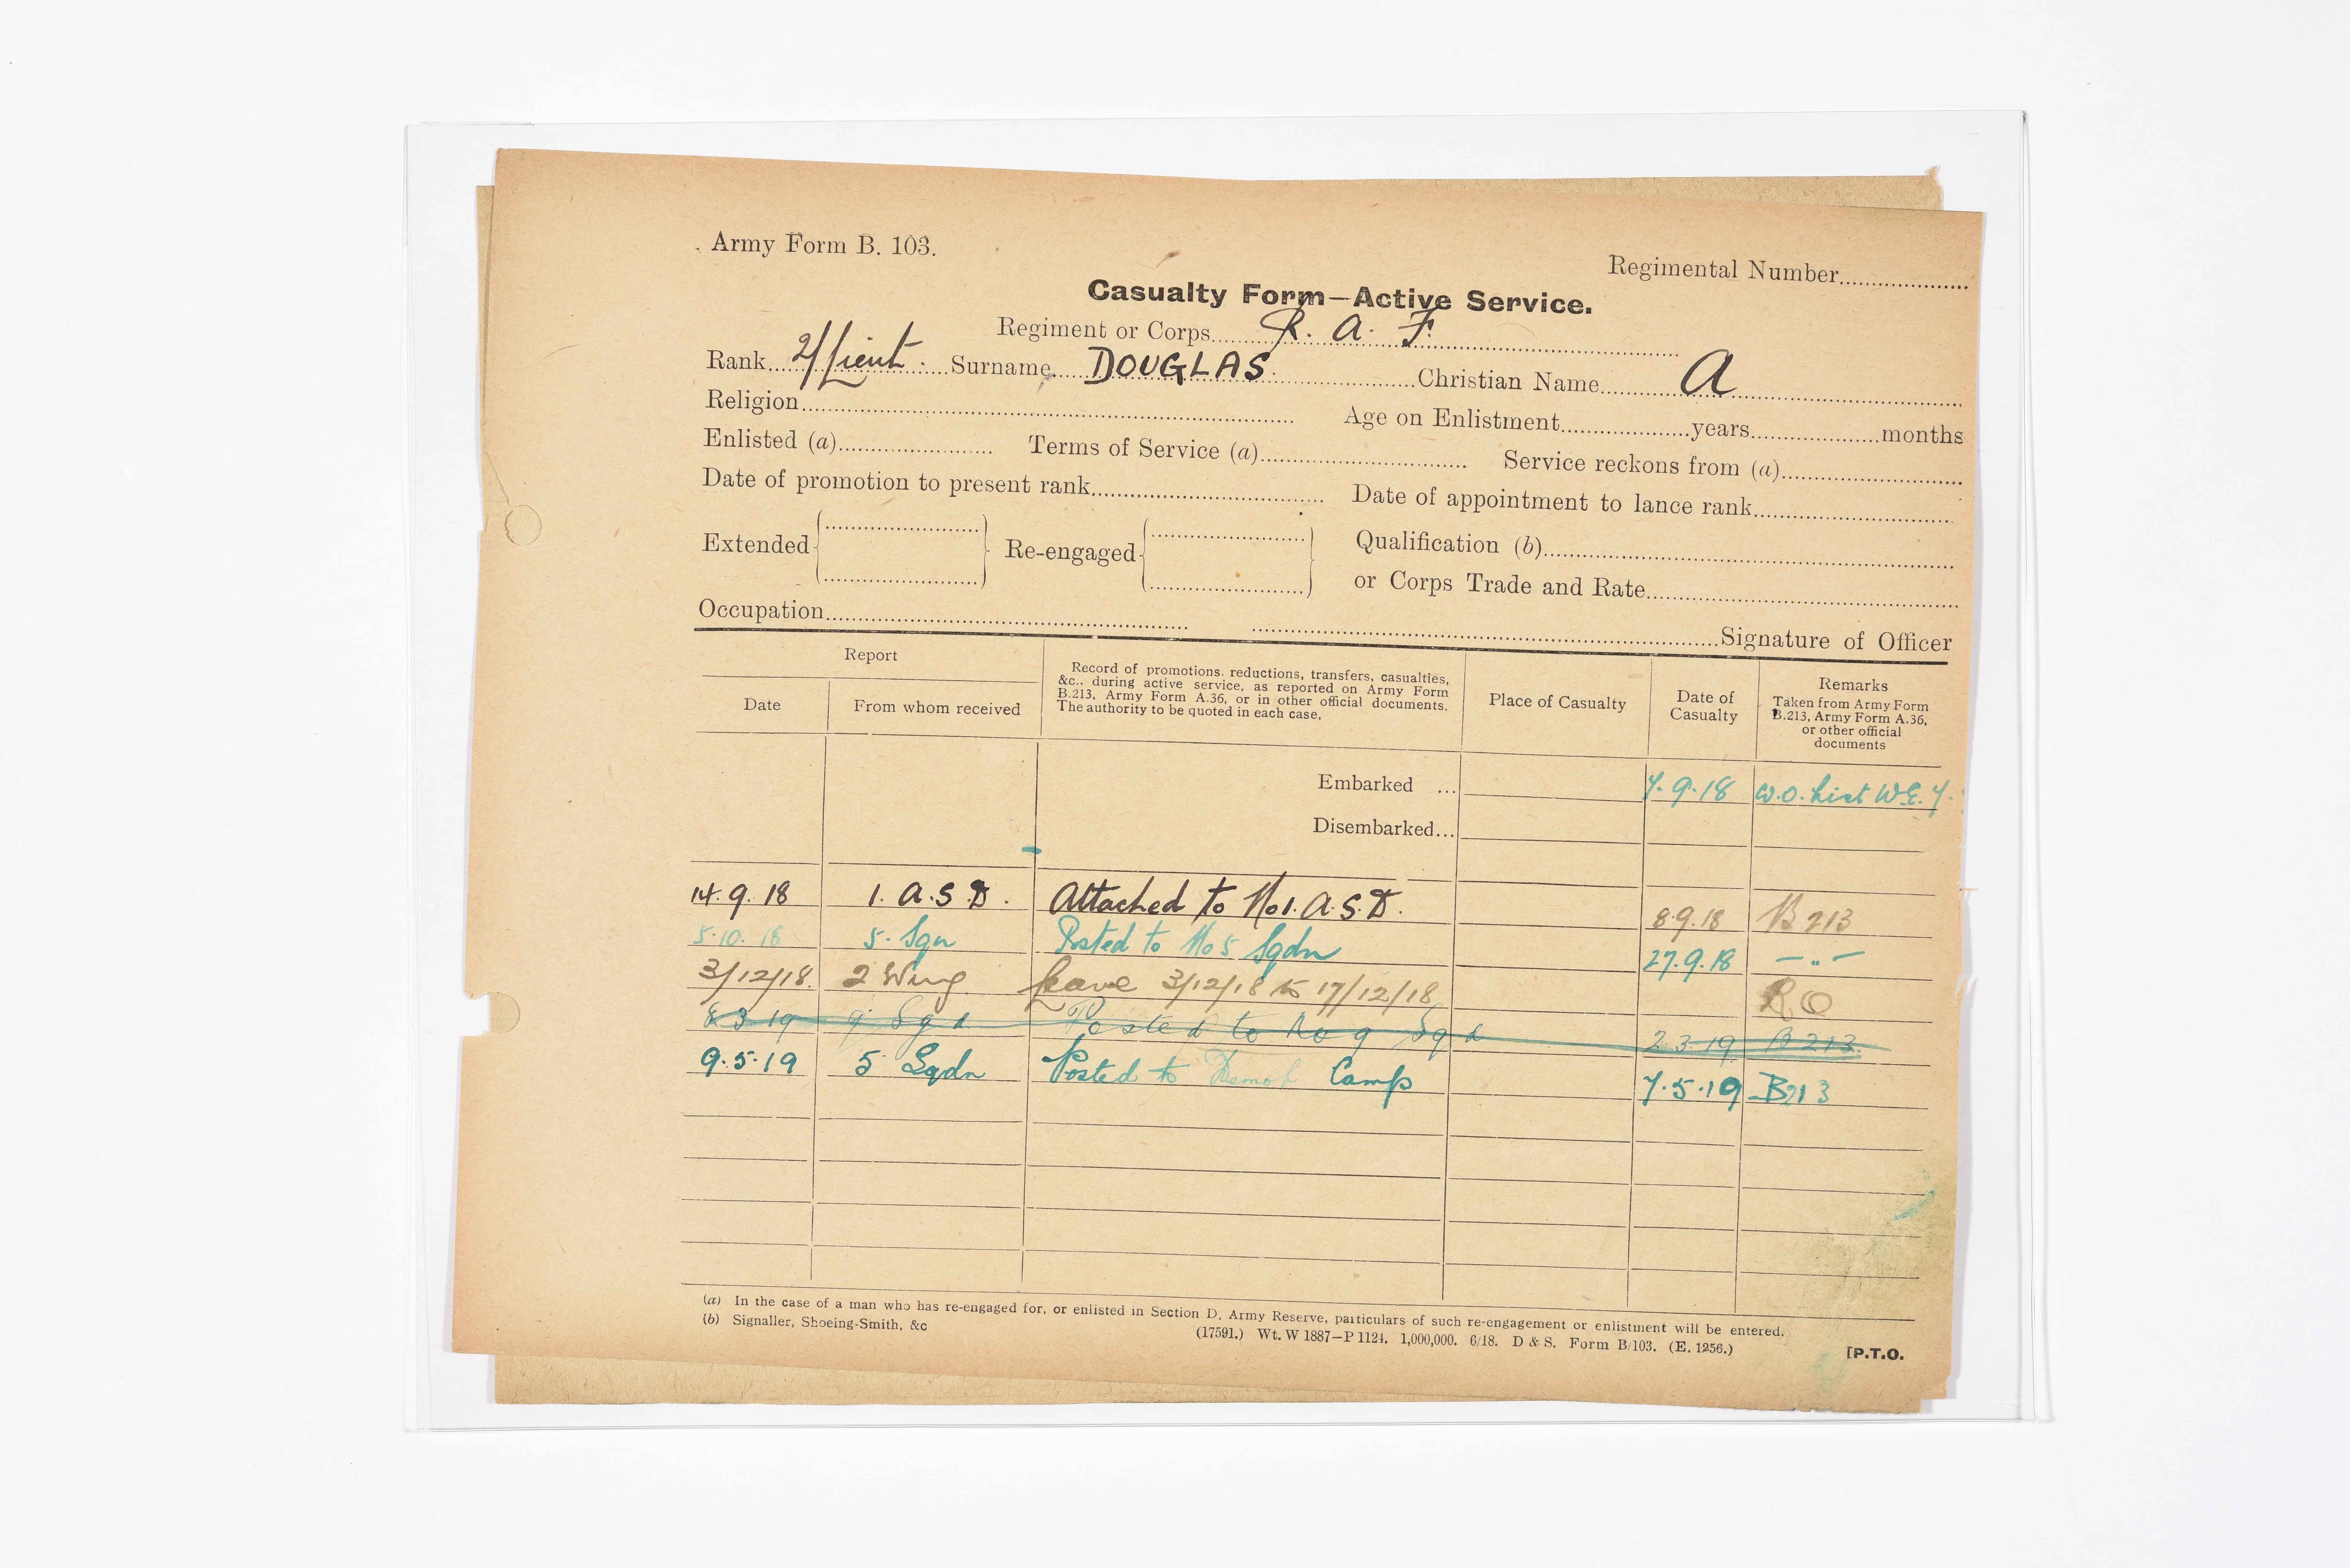 Army Form B. 103.
Regimental Number
Casualty Form—Active Service.
Regiment or Corps R. A. F.
Rank 2/Lieut. Surname DOUGLAS Christian Name A
Religion Age on Enlistment years months
Enlisted (a) Terms of Service (a) Service reckons from (a)
Date of promotion to present rank Date of appointment to lance rank
Extended Re-engaged Qualification (b)
or Corps Trade and Rate
Occupation Signature of Officer
Report
Date From whom received
Record of promotions, reductions, transfers, casualties,
&c., during active service, as reported on Army Form
B.213, Army Form A.36, or in other official documents.
The authority to be quoted in each case.
Place of Casualty
Date of
Casualty
Remarks
Taken from Army Form
B.213, Army Form A.36,
or other official
documents
Embarked ... 7.9.18 W.O. List W.E. 7.
Disembarked...
14.9.18 1. A.S.D. Attached to No 1. A.S.D. 8.9.18 B 213
5.10.18 5. Sqn Posted to No 5 Sqdn 27.9.18 — " —
3/12/18. 2 Wing Leave 3/12/18 to 17/12/18 RO
8 3 19 9 Sqd Posted to No 9 Sqd 2 3 19 B 213.
9.5.19 5 Sqdn Posted to Demob Camp 7.5.19 B213
(a) In the case of a man who has re-engaged for, or enlisted in Section D, Army Reserve, particulars of such re-engagement or enlistment will be entered.
(b) Signaller, Shoeing-Smith, &c
(17591.) Wt. W 1887—P 1124. 1,000,000. 6/18. D & S. Form B/103. (E. 1256.)
[P.T.O.